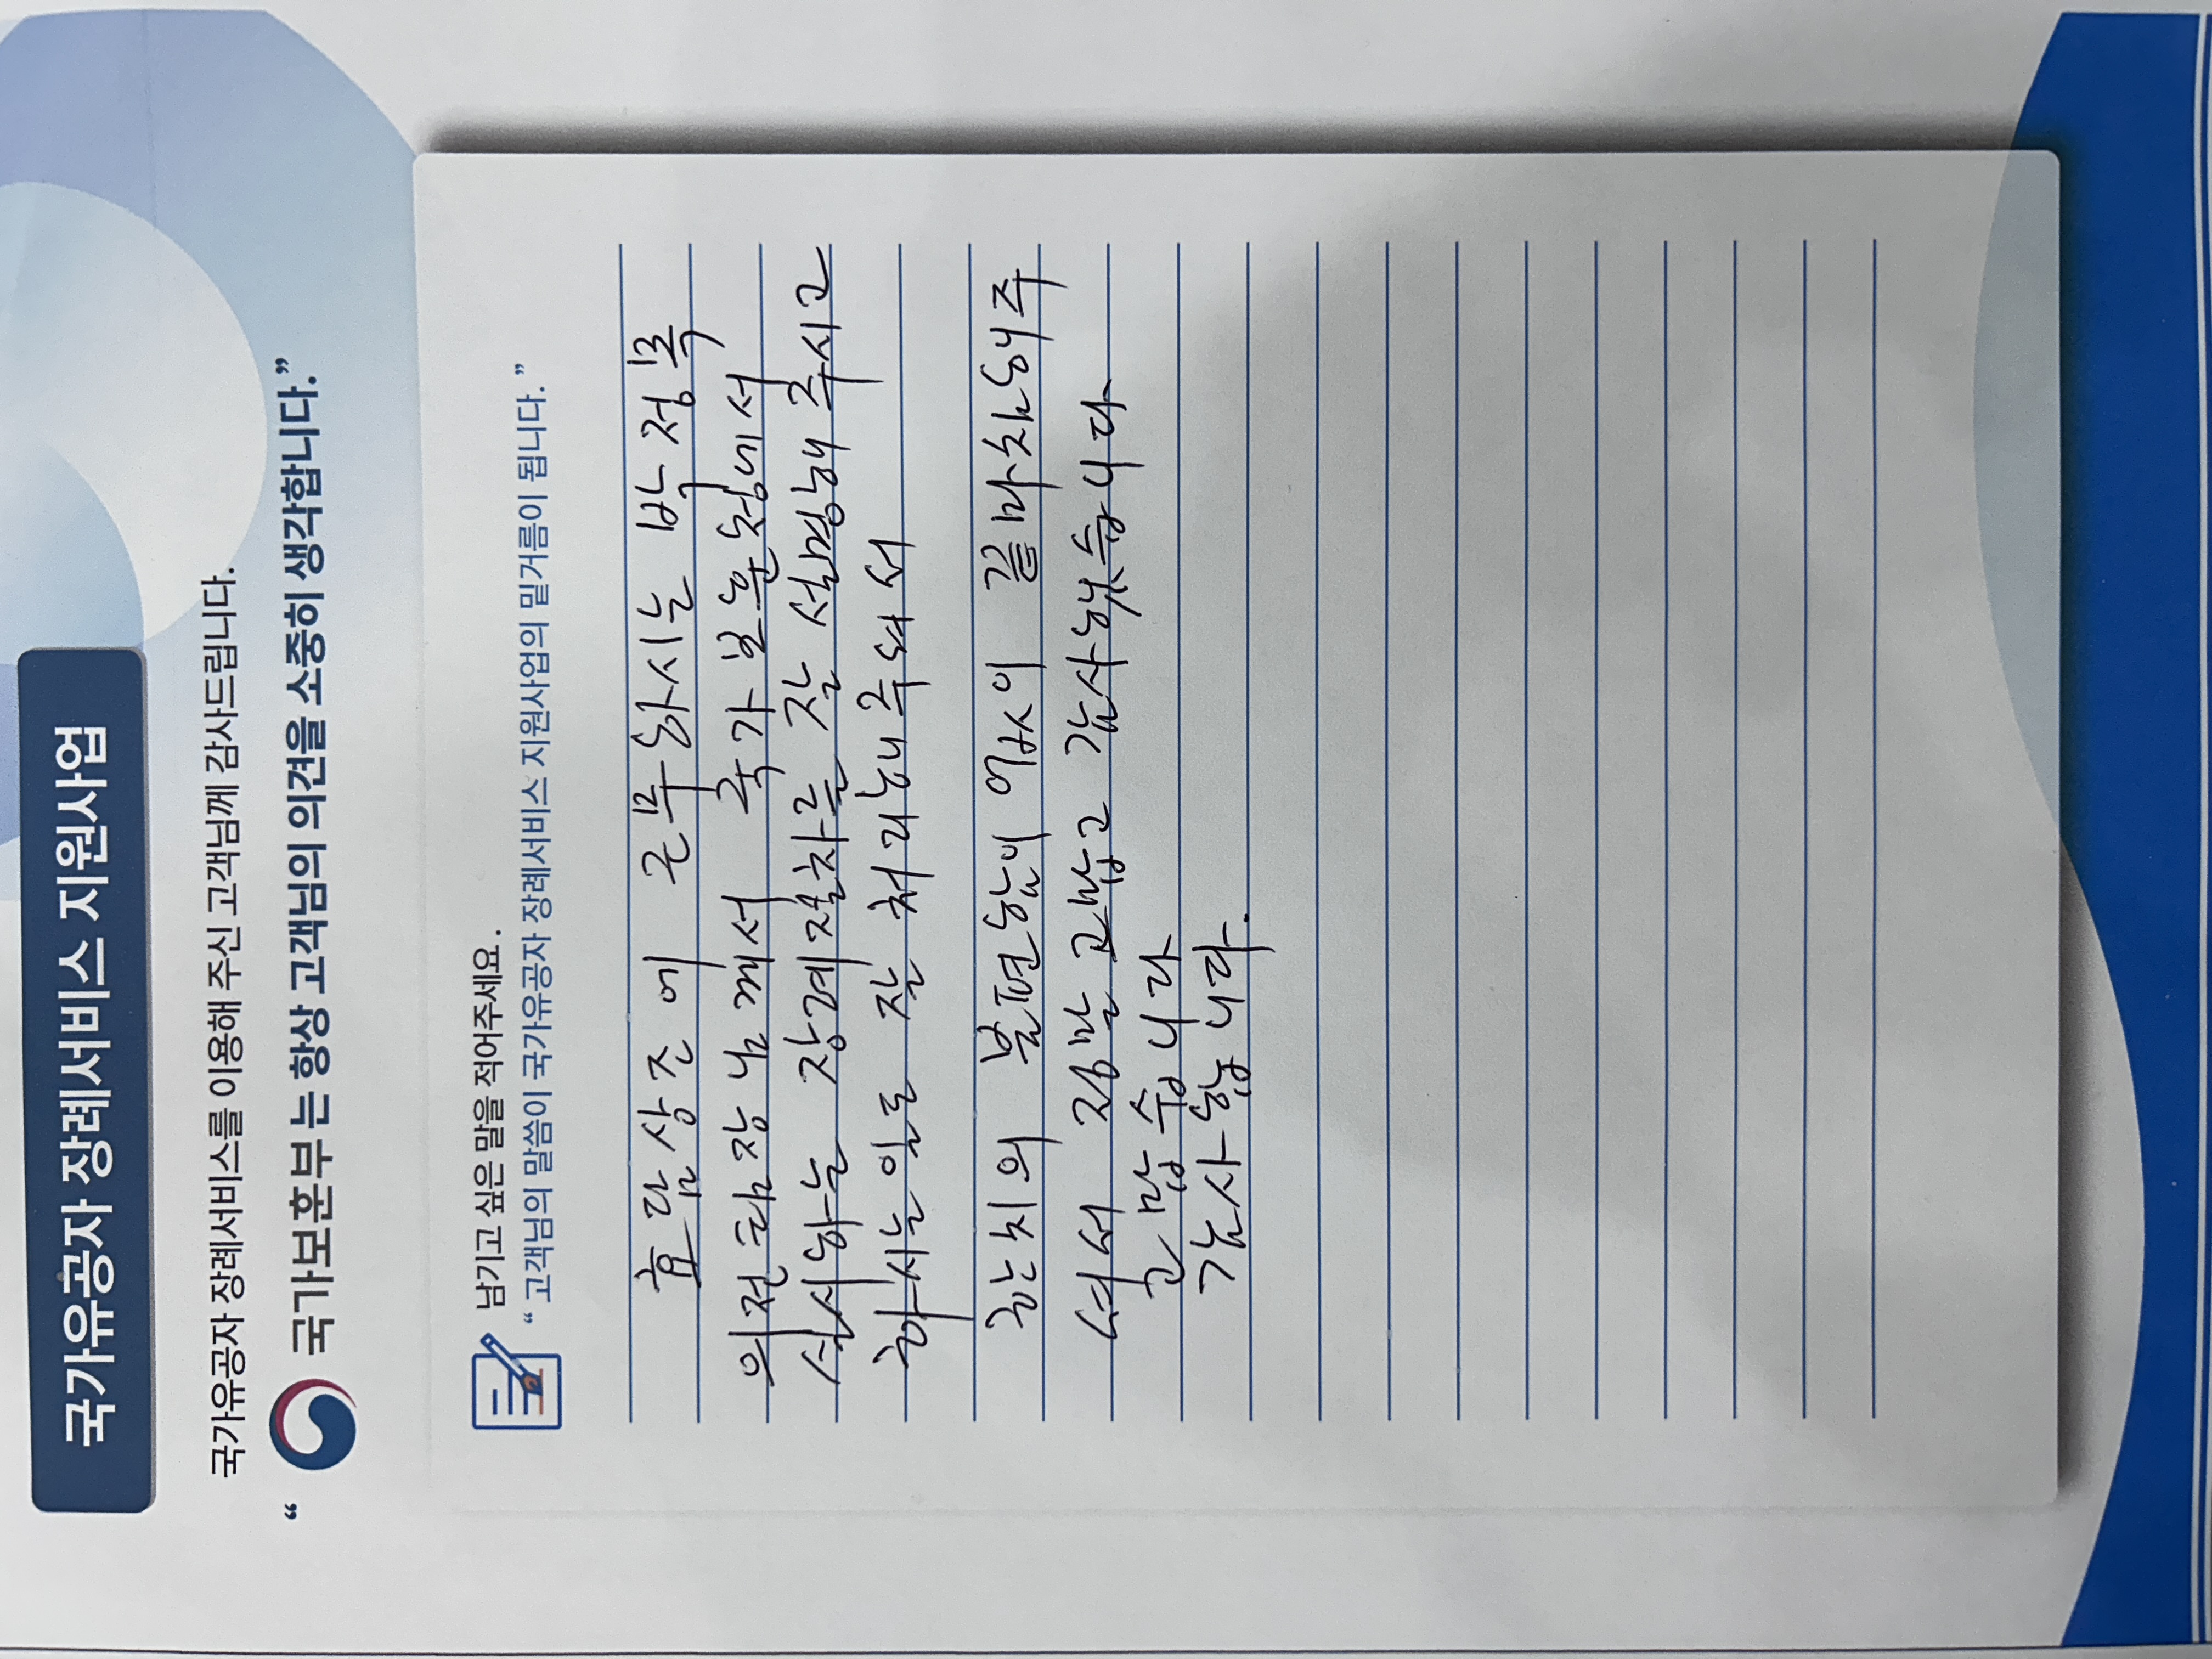 국가유공자 장례서비스 지원사업
국가유공자 장례서비스를 이용해 주신 고객님께 감사드립니다.
“ 국가보훈부 는 항상 고객님의 의견을 소중히 생각합니다.”
남기고 싶은 말을 적어주세요.
“ 고객님의 말씀이 국가유공자 장례서비스 지원사업의 밑거름이 됩니다. ”
효담상조에 근무하시는 박정목
의전팀장님께서 국가보훈청에서
실시하는 장례절차를 잘 설명해 주시고
하시는일도 잘 처리해주셔서
한치의 불편함이 없이 끝마침해주
셔서 정말 고맙고 감사했습니다
고맙습니다
감사합니다.